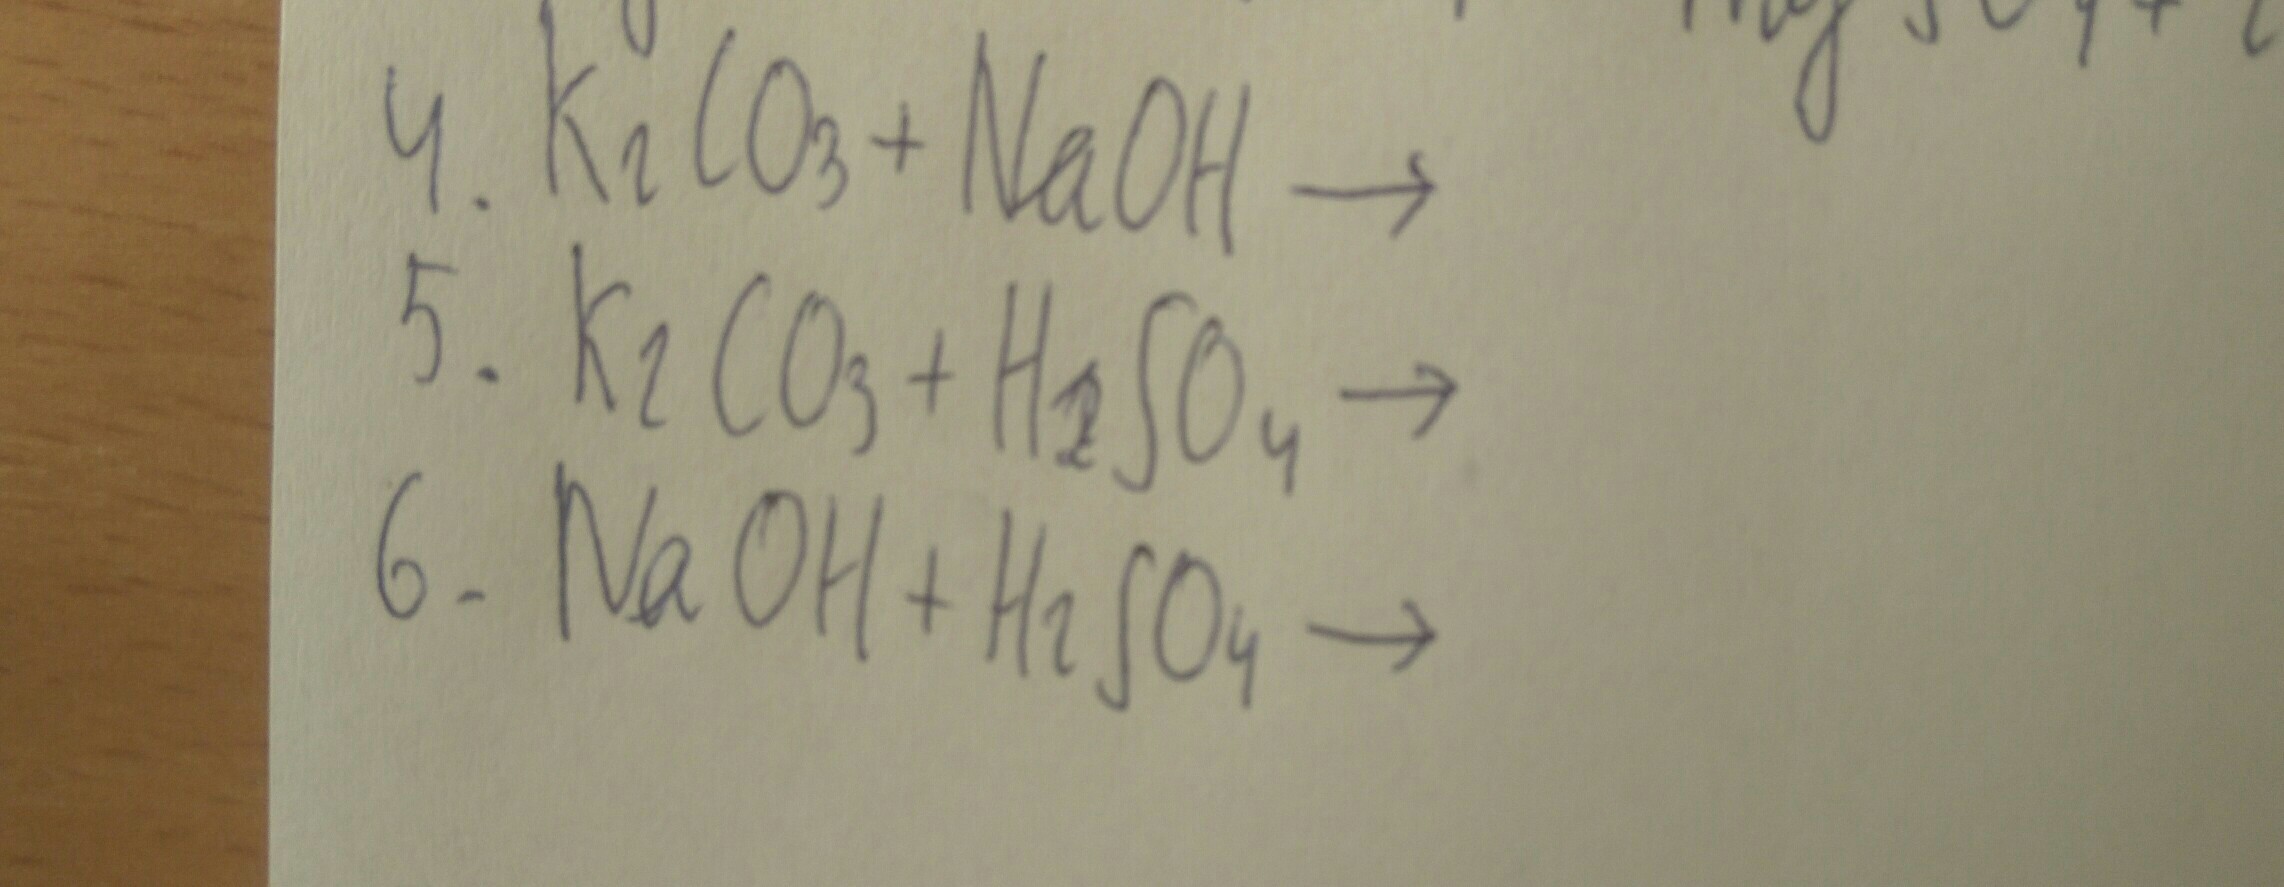 MgSO4 +
4. K2CO3 + NaOH →
5. K2CO3 + H2SO4 →
6. NaOH + H2SO4 →